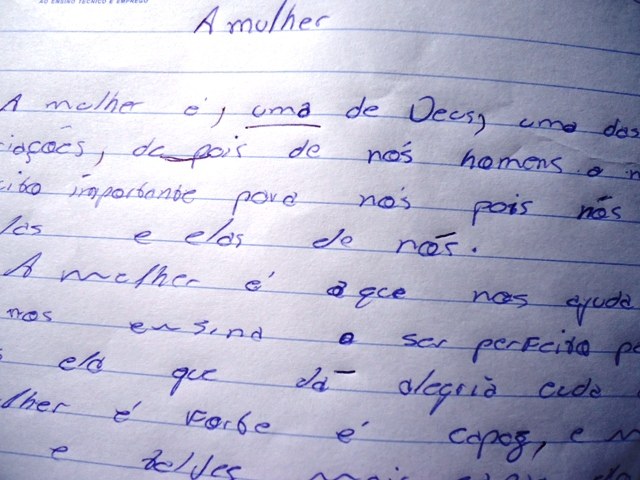 AO ENSINO TÉCNICO E EMPREGO
A mulher
A mulher é, uma de Deus, uma das
iações, de pois de nós homens. a m
ito importante para nós pois nós
las e elas de nós.
A mulher é a que nos ajuda
nos ensina a ser perfeito pa
s ela que dá alegria cada
lher é forte é capaz, e m
e talves mais